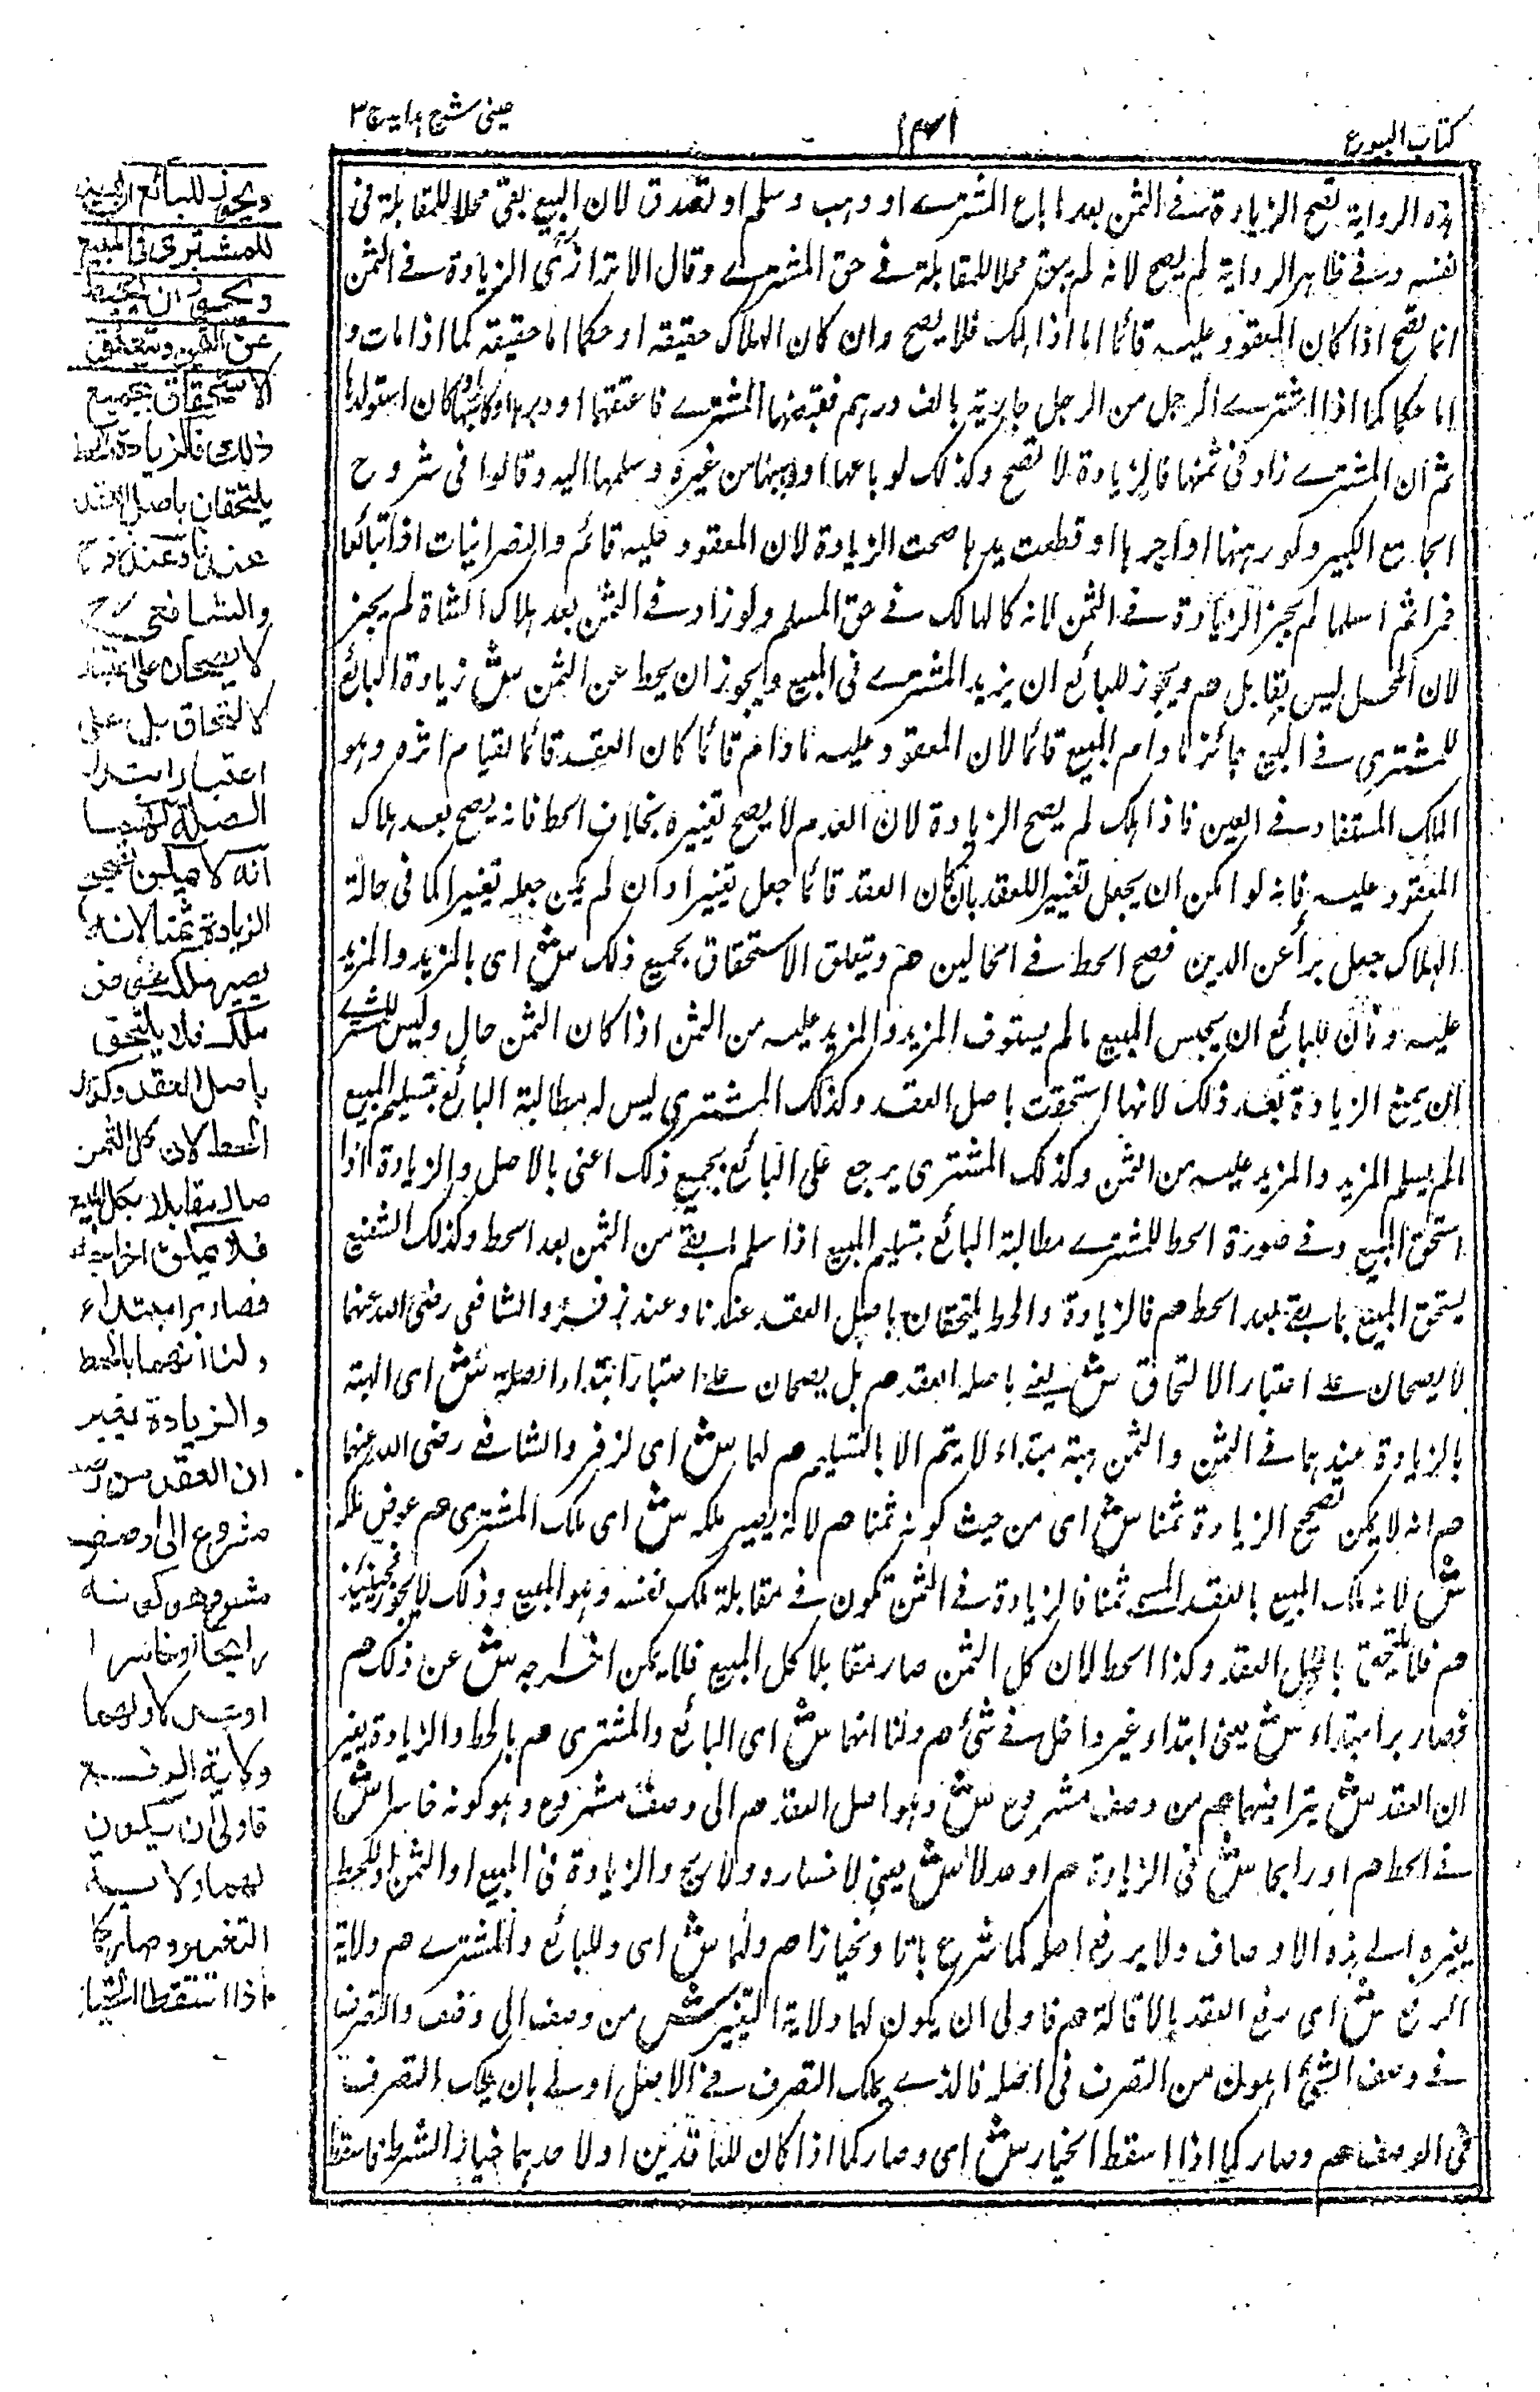 كتاب البيوع
١٣١
عينى شرح هدايه ج ٣
هذه الرواية تصح الزيادة فى الثمن بعد اباع المشترى او وهب وسلم او تصدق لان البيع بقى محلا للمقابلة فى
نفسه وفى ظاهر الرواية لم يصح لانه لم يبق محلا للمقابلة فى حق المشترى وقال الاترازى الزيادة فى الثمن
انما تصح اذا كان المعقود عليه قائما اما اذا هلك فلا يصح وان كان الهلاك حقيقة او حكما اما حقيقة كما اذا مات و
اما حكما كما اذا اشترى الرجل من الرجل جارية بالف درهم فقبضها المشترى فاعتقها او دبرها او كاتبها او كان استولدها
ثم ان المشترى زاد فى ثمنها فالزيادة لا تصح وكذلك لو باعها او وهبها من غيره وسلمها اليه وقالوا فى شروح
الجامع الكبير ولو رهنها او آجرها او قطعت يدها صحت الزيادة لان المعقود عليه قائم والنصرانيات اذا تبائعا
خمرا ثم اسلما لم يجز الزيادة فى الثمن لانه كالهالك فى حق المسلم ولو زاد فى الثمن بعد هلاك الشاة لم يجز
لان المحل ليس بقابل هم ويجوز للبائع ان يزيد المشترى فى المبيع ويجوز ان يحط عن الثمن ش زيادة البائع
للمشترى فى المبيع جائز مادام المبيع قائما لان المعقود عليه مادام قائما كان العقد قائما لقيام اثره وهو
الملك المستفاد فى العين فاذا هلك لم يصح الزيادة لان العدم لا يصح تغييره بخلاف الحط فانه يصح بعد هلاك
المعقود عليه فانه لو امكن ان يجعل تغييرا للعقد بان كان العقد قائما جعل تغييرا وان لم يمكن جعله تغييرا كما فى حالة
الهلاك جعل برأ عن الدين فصح الحط فى الحالين هم ويتعلق الاستحقاق بجميع ذلك ش اى بالمزيد والمزيد
عليه وكان للبائع ان يحبس المبيع مالم يستوف المزيد والمزيد عليه من الثمن اذا كان الثمن حال وليس للمشترى
ان يمنع الزيادة بعد ذلك لانها استحقت باصل العقد وكذلك المشترى ليس له مطالبة البائع بتسليم المبيع
مالم يسلم المزيد والمزيد عليه من الثمن وكذلك المشترى يرجع على البائع بجميع ذلك اعنى بالاصل والزيادة اذا
استحق المبيع وفى صورة الحط للمشترى مطالبة البائع بتسليم المبيع اذا سلم ما بقى من الثمن بعد الحط وكذلك الشفيع
يستحق المبيع بما بقى بعد الحط هم فالزيادة والحط يلتحقان باصل العقد عندنا وعند زفر والشافعى رضى الله عنهما
لا يصحان على اعتبار الالتحاق ش يعنى باصل العقد هم بل يصحان على اعتبار ابتداء الصلة ش اى الهبة
بالزيادة عندهما فى الثمن والثمن هبة مبتداء لا يتم الا بالتسليم هم لهما ش اى لزفر والشافعى رضى الله عنهما
هم انه لا يمكن تصحيح الزيادة ثمنا ش اى من حيث كونه ثمنا هم لانه يصير ملكه ش اى ملك المشترى هم عوض ملكه
ش لانه ملك المبيع بالعقد المسمى ثمنا فالزيادة فى الثمن تكون فى مقابلة ملك نفسه وهو المبيع وذلك لا يجوز فحينئذ
هم فلا يلتحق باصل العقد وكذا الحط لان كل الثمن صار مقابلا بكل المبيع فلا يمكن اخراجه ش عن ذلك هم
فصار برا مبتداء ش يعنى ابتداء غير داخل فى شئ هم ولنا انهما ش اى البائع والمشترى هم بالحط والزيادة يغير
ان العقد ش بتراضيهما هم من وصف مشروع ش وهو اصل العقد هم الى وصف مشروع وهو كونه خاسرا ش
فى الحط هم او رابحا ش فى الزيادة هم او عدلا ش يعنى لا خسارة ولا ربح والزيادة فى المبيع او الثمن او للحط
يغيره الى هذه الاوصاف ولا يرفع اصله كما شرع باتا وخيارا هم ولهما ش اى وللبائع والمشترى هم ولاية
الرفع ش اى رفع العقد بالاقالة هم فاولى ان يكون لهما ولاية التغيير ش من وصف الى وصف والتصرف
فى وصف الشئ اهون من التصرف فى اصله فالذى يملك التصرف فى الاصل اولى بان يملك التصرف
فى الوصف هم وصار كما اذا اسقط الخيار ش اى وصار كما اذا كان للعاقدين او لاحدهما خيار الشرط فاسقط
ويجوز للبائع ان يزيد
للمشترى فى المبيع
ويجوز ان يحط
عن الثمن ويتعلق
الاستحقاق بجميع
ذلك فالزيادة والحط
يلتحقان باصل العقد
عندنا وعند زفر
والشافعى رح
لا يصحان على اعتبار
الالتحاق بل على
اعتبار ابتداء
الصلة لهما
انه لا يمكن تصحيح
الزيادة ثمنا لانه
يصير ملكه عوض
ملكه فلا يلتحق
باصل العقد وكذا
الحط لان كل الثمن
صار مقابلا بكل المبيع
فلا يمكن اخراجه
فصار برا مبتداء
ولنا انهما بالحط
والزيادة يغير
ان العقد من وصف
مشروع الى وصف
مشروع هو كونه
رابحا او خاسرا
او عدلا ولهما
ولاية الرفع
فاولى ان يكون
لهما ولاية
التغيير وصار كما
اذا اسقطا الخيار